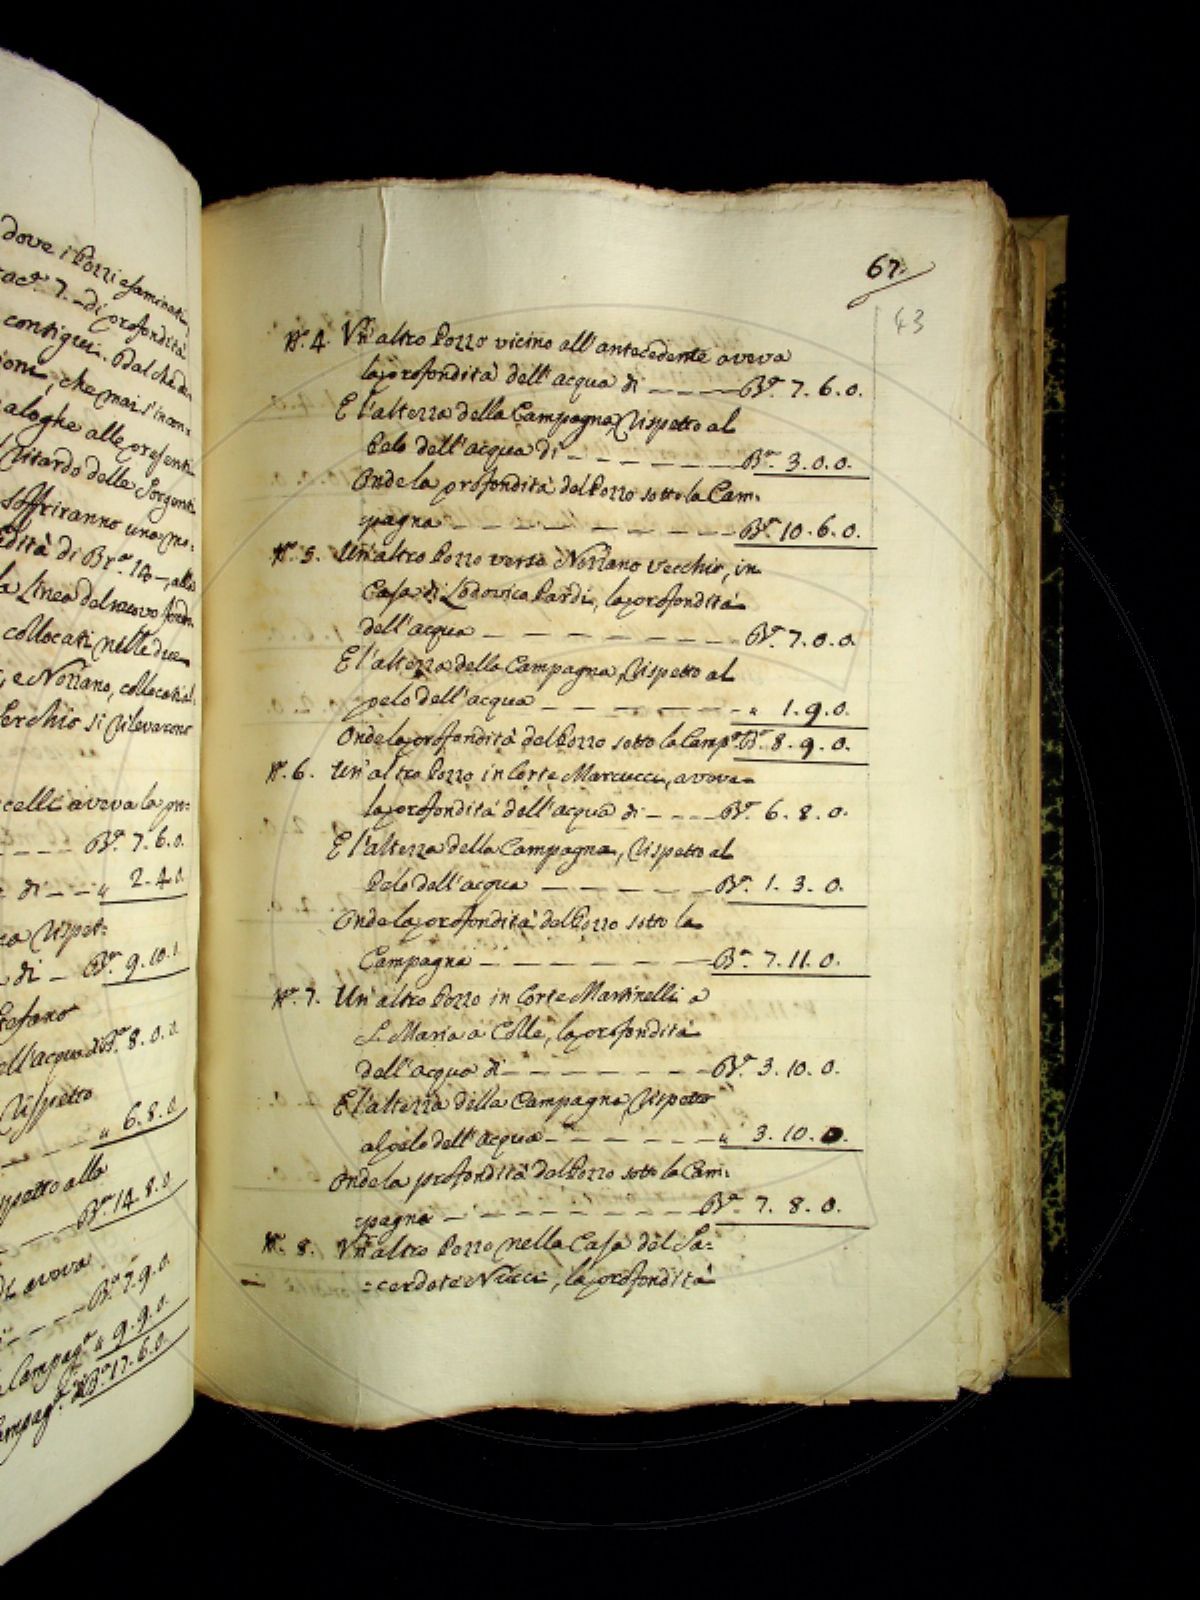 dove i Pozzi esaminati
7. di profondità
contigui. Dal che de-
ioni, che mai s'incon-
aloghe alle presenti
l ritardo delle Sorgenti
soffriranno una mo-
dità di Br.ª 14 –, alla
la Linea del nuovo
collocati nelle due
e Nozzano, collocati al
Serchio si rilevarono
celli aveva la pro-
---- Br.ª 7. 6. 0.
di --- „ 2. 4. 0.
rispet-
di – Br.ª 9. 10.
Stefano
ell'acqua di Br.ª 8. 0. 0.
rispetto
„ 6. 8. 0.
rispetto alla
Br.ª 14. 8. 0.
di aveva
Br.ª 7. 9. 0.
Campag.ª „ 9. 9. 0.
ampag.ª Br.ª 17. 6. 0.
67.
43
N.º 4. Un'altro Pozzo vicino all'antecedente aveva
la profondità dell'acqua di ---- Br.ª 7. 6. 0.
E l'altezza della Campagna, rispetto al
Pelo dell'acqua di ------ Br.ª 3. 0. 0.
Onde la profondità del Pozzo sotto la Cam-
pagna -------- Br.ª 10. 6. 0.
N.º 5. Un'altro Pozzo verso Nozzano Vecchio, in
Casa di Lodovico Pardi, la profondità
dell'acqua ------- Br.ª 7. 0. 0.
E l'altezza della Campagna, rispetto al
pelo dell'acqua ------ „ 1. 9. 0.
Onde la profondità del Pozzo sotto la Camp.ª Br.ª 8. 9. 0.
N. 6. Un'altro Pozzo in Corte Marcucci, aveva
la profondità dell'acqua di ---- Br.ª 6. 8. 0.
E l'altezza della Campagna, rispetto al
Pelo dell'acqua ------ Br.ª 1. 3. 0.
Onde la profondità del Pozzo sotto la
Campagna ------- Br.ª 7. 11. 0.
N.º 7. Un'altro Pozzo in Corte Martinelli a
S. Maria a Colle, la profondità
dell'acqua di ------- Br.ª 3. 10. 0.
E l'altezza della Campagna, rispetto
al pelo dell'acqua ------ „ 3. 10. 0.
Onde la profondità del Pozzo sotto la Cam-
pagna -------- Br.ª 7. 8. 0.
N.º 8. Un'altro Pozzo nella Casa del Sa=
=cerdote Nucci, la profondità